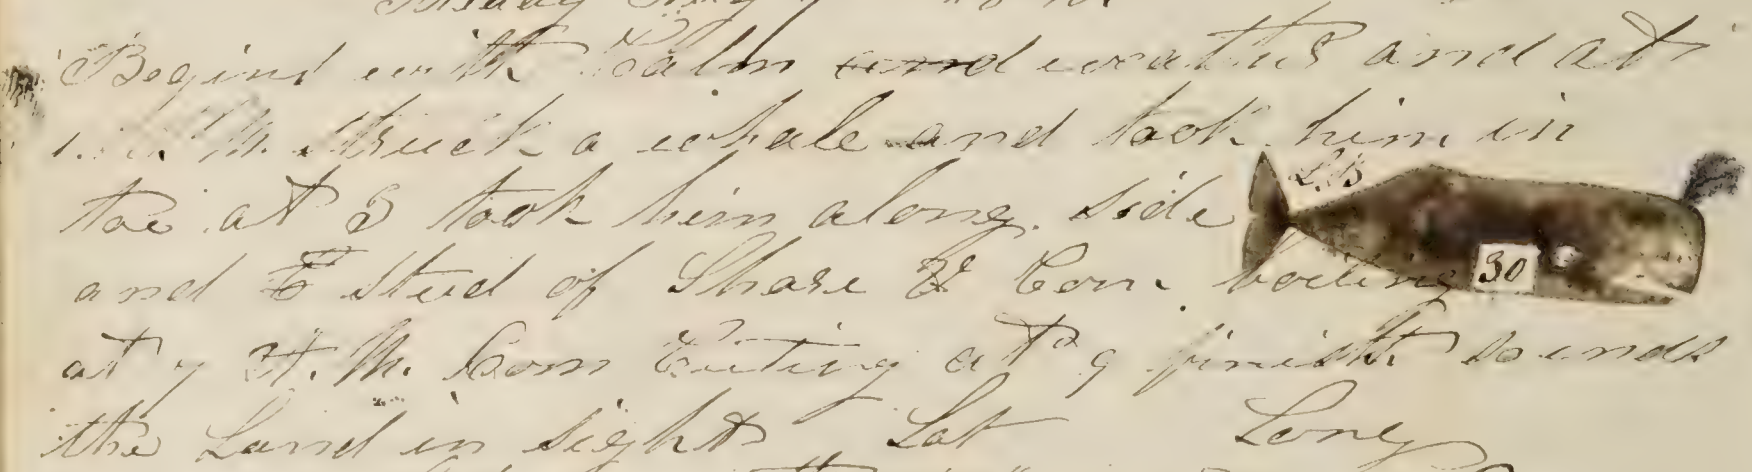 Begins with Calm and weather and at
1 A M. struck a whale and took him in
toe at 3 took him along side
L.B
and stud of Shore & Com boiling
30
at 7 A. M. Com Cuting at 9 finisht
the Land in sight Lat Long